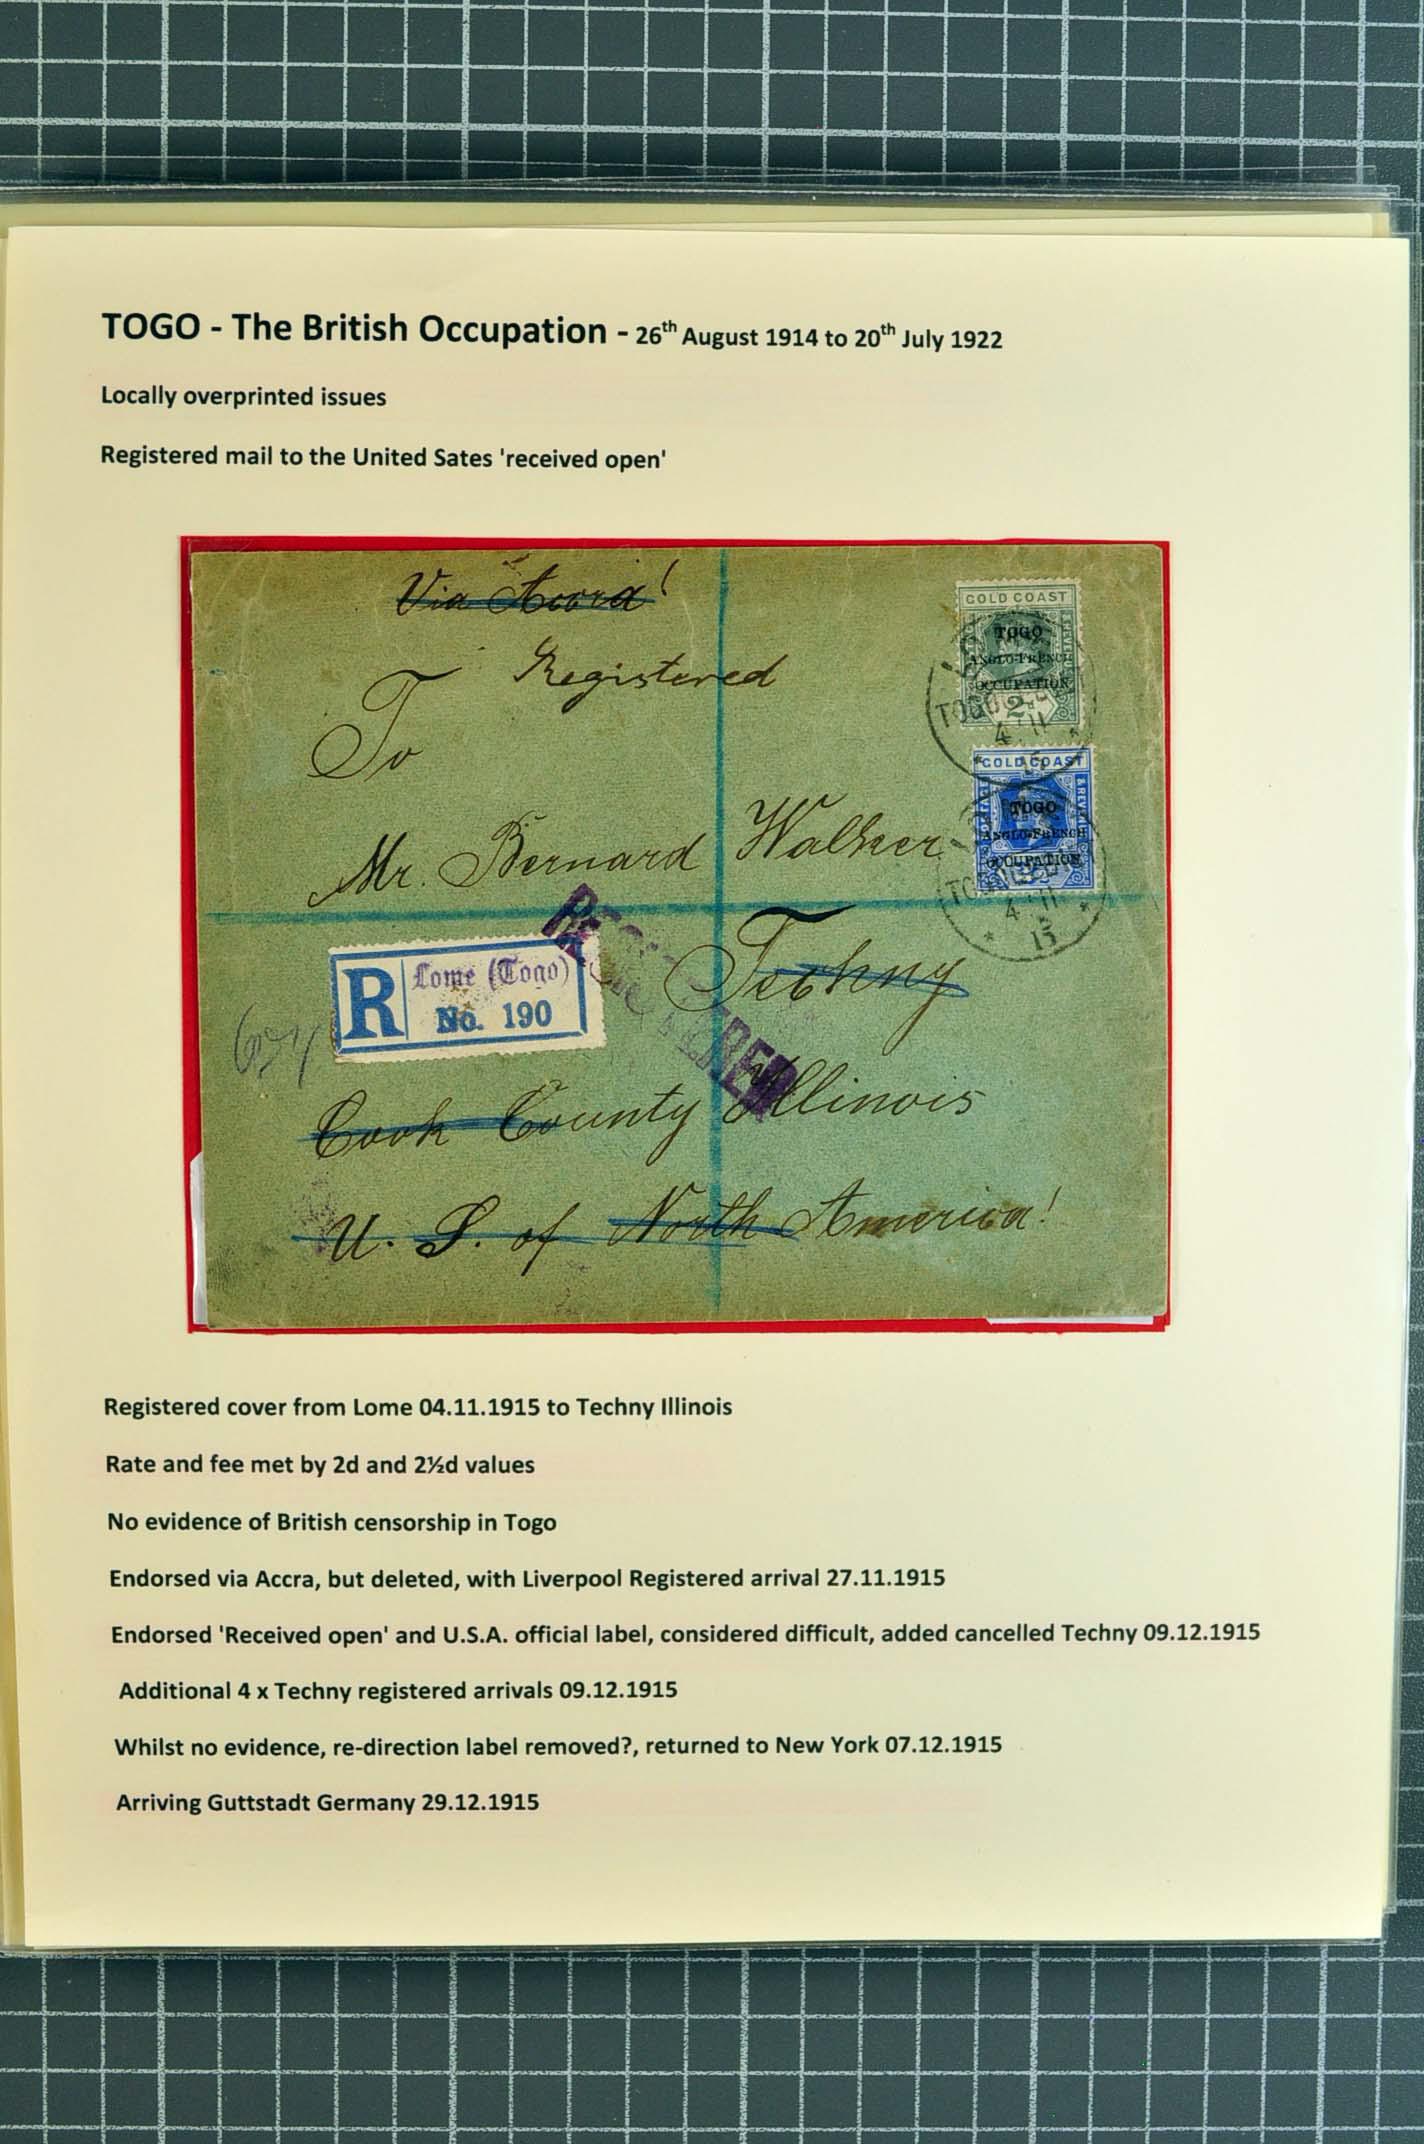 TOGO - The British Occupation - 26th August 1914 to 20th July 1922
Locally overprinted issues
Registered mail to the United Sates 'received open'
Via Accra!
Registered
To
Mr. Bernard Walker
Techny
Cook County Illinois
U. S. of North America!
GOLD COAST
TOGO
ANGLO-FRENCH
OCCUPATION
2d
TOGO
4 11
15
GOLD COAST
TOGO
ANGLO-FRENCH
OCCUPATION
4 11
15
REGISTERED
R Lome (Togo)
No. 190
Registered cover from Lome 04.11.1915 to Techny Illinois
Rate and fee met by 2d and 2½d values
No evidence of British censorship in Togo
Endorsed via Accra, but deleted, with Liverpool Registered arrival 27.11.1915
Endorsed 'Received open' and U.S.A. official label, considered difficult, added cancelled Techny 09.12.1915
Additional 4 x Techny registered arrivals 09.12.1915
Whilst no evidence, re-direction label removed?, returned to New York 07.12.1915
Arriving Guttstadt Germany 29.12.1915